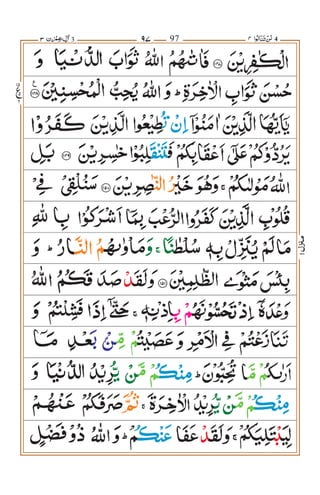 ٤ لن تنالوا ٤ 97 ٩٧ ٣ ال عمران ٣
الْكٰفِرِيْنَ ۝ فَاٰتٰىهُمُ اللّٰهُ ثَوَابَ الدُّنْيَا وَ
حُسْنَ ثَوَابِ الْاٰخِرَةِ ؕ وَ اللّٰهُ يُحِبُّ الْمُحْسِنِيْنَ ۝
يٰۤاَيُّهَا الَّذِيْنَ اٰمَنُوْۤا اِنْ تُطِيْعُوا الَّذِيْنَ كَفَرُوْا
يَرُدُّوْكُمْ عَلٰۤى اَعْقَابِكُمْ فَتَنْقَلِبُوْا خٰسِرِيْنَ ۝ بَلِ
اللّٰهُ مَوْلٰىكُمْ ۚ وَهُوَ خَيْرُ النّٰصِرِيْنَ ۝ سَنُلْقِيْ فِيْ
قُلُوْبِ الَّذِيْنَ كَفَرُوا الرُّعْبَ بِمَاۤ اَشْرَكُوْا بِاللّٰهِ
مَا لَمْ يُنَزِّلْ بِهٖ سُلْطٰنًا ۚ وَمَاْوٰىهُمُ النَّارُ ؕ وَ
بِئْسَ مَثْوَى الظّٰلِمِيْنَ ۝ وَلَقَدْ صَدَقَكُمُ اللّٰهُ
وَعْدَهٗۤ اِذْ تَحُسُّوْنَهُمْ بِاِذْنِهٖ ۚ حَتّٰۤى اِذَا فَشِلْتُمْ وَ
تَنَازَعْتُمْ فِي الْاَمْرِ وَ عَصَيْتُمْ مِّنْۢ بَعْدِ مَاۤ
اَرٰىكُمْ مَّا تُحِبُّوْنَ ؕ مِنْكُمْ مَّنْ يُّرِيْدُ الدُّنْيَا وَ
مِنْكُمْ مَّنْ يُّرِيْدُ الْاٰخِرَةَ ۚ ثُمَّ صَرَفَكُمْ عَنْهُمْ
لِيَبْتَلِيَكُمْ ۚ وَلَقَدْ عَفَا عَنْكُمْ ؕ وَ اللّٰهُ ذُوْ فَضْلٍ